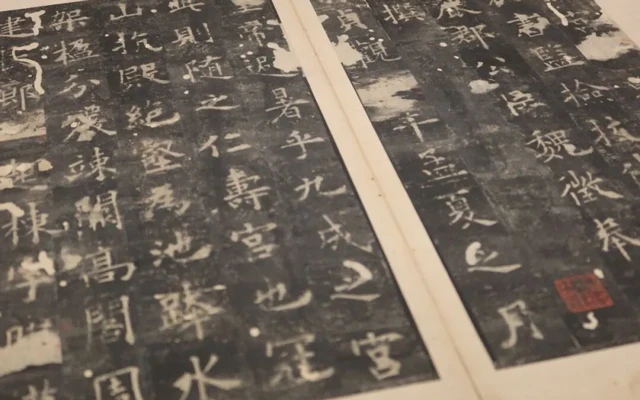 書監撿挍
鹿郡公臣魏徵奉
撰
貞觀
年孟夏之月
帝避暑乎九成之宮
此則隨之仁壽宮也冠
山抗殿絕壑為池跨水
架楹分巖竦闕高閣周
建
起棟宇